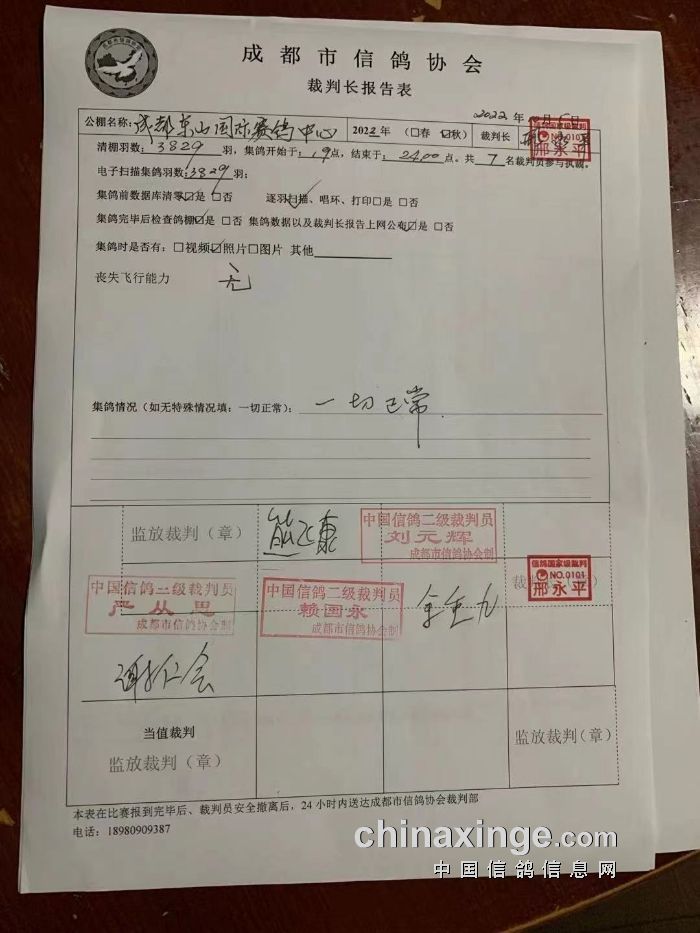 成都市信鸽协会
裁判长报告表
2022年
公棚名称：成都东山国际赛鸽中心 2022年（□春 ☑秋） 裁判长
NO.0101
邢永平
清棚羽数：3829羽，集鸽开始于：19点，结束于：2400点。共7名裁判员参与执裁。
电子扫描集鸽羽数：3829羽；
集鸽前数据库清零☑是 □否 逐羽扫描、唱环、打印□是 □否
集鸽完毕后检查鸽棚☑是 □否 集鸽数据以及裁判长报告上网公布☑是 □否
集鸽时是否有：□视频☑照片□图片 其他
丧失飞行能力 无
集鸽情况（如无特殊情况填：一切正常）：一切正常
监放裁判（章）
中国信鸽二级裁判员
刘元辉
成都市信鸽协会制
中国信鸽二级裁判员
严从思
成都市信鸽协会制
中国信鸽二级裁判员
赖国永
成都市信鸽协会制
信鸽国家级裁判
NO.0101
邢永平
谢仁会
当值裁判
监放裁判（章）
监放裁判（章）
本表在比赛报到完毕后、裁判员安全撤离后，24小时内送达成都市信鸽协会裁判部
电话：18980909387
chinaxinge.com
中国信鸽信息网